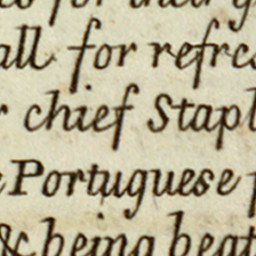 all for refres
chief Stapl
Portuguese
& being beat